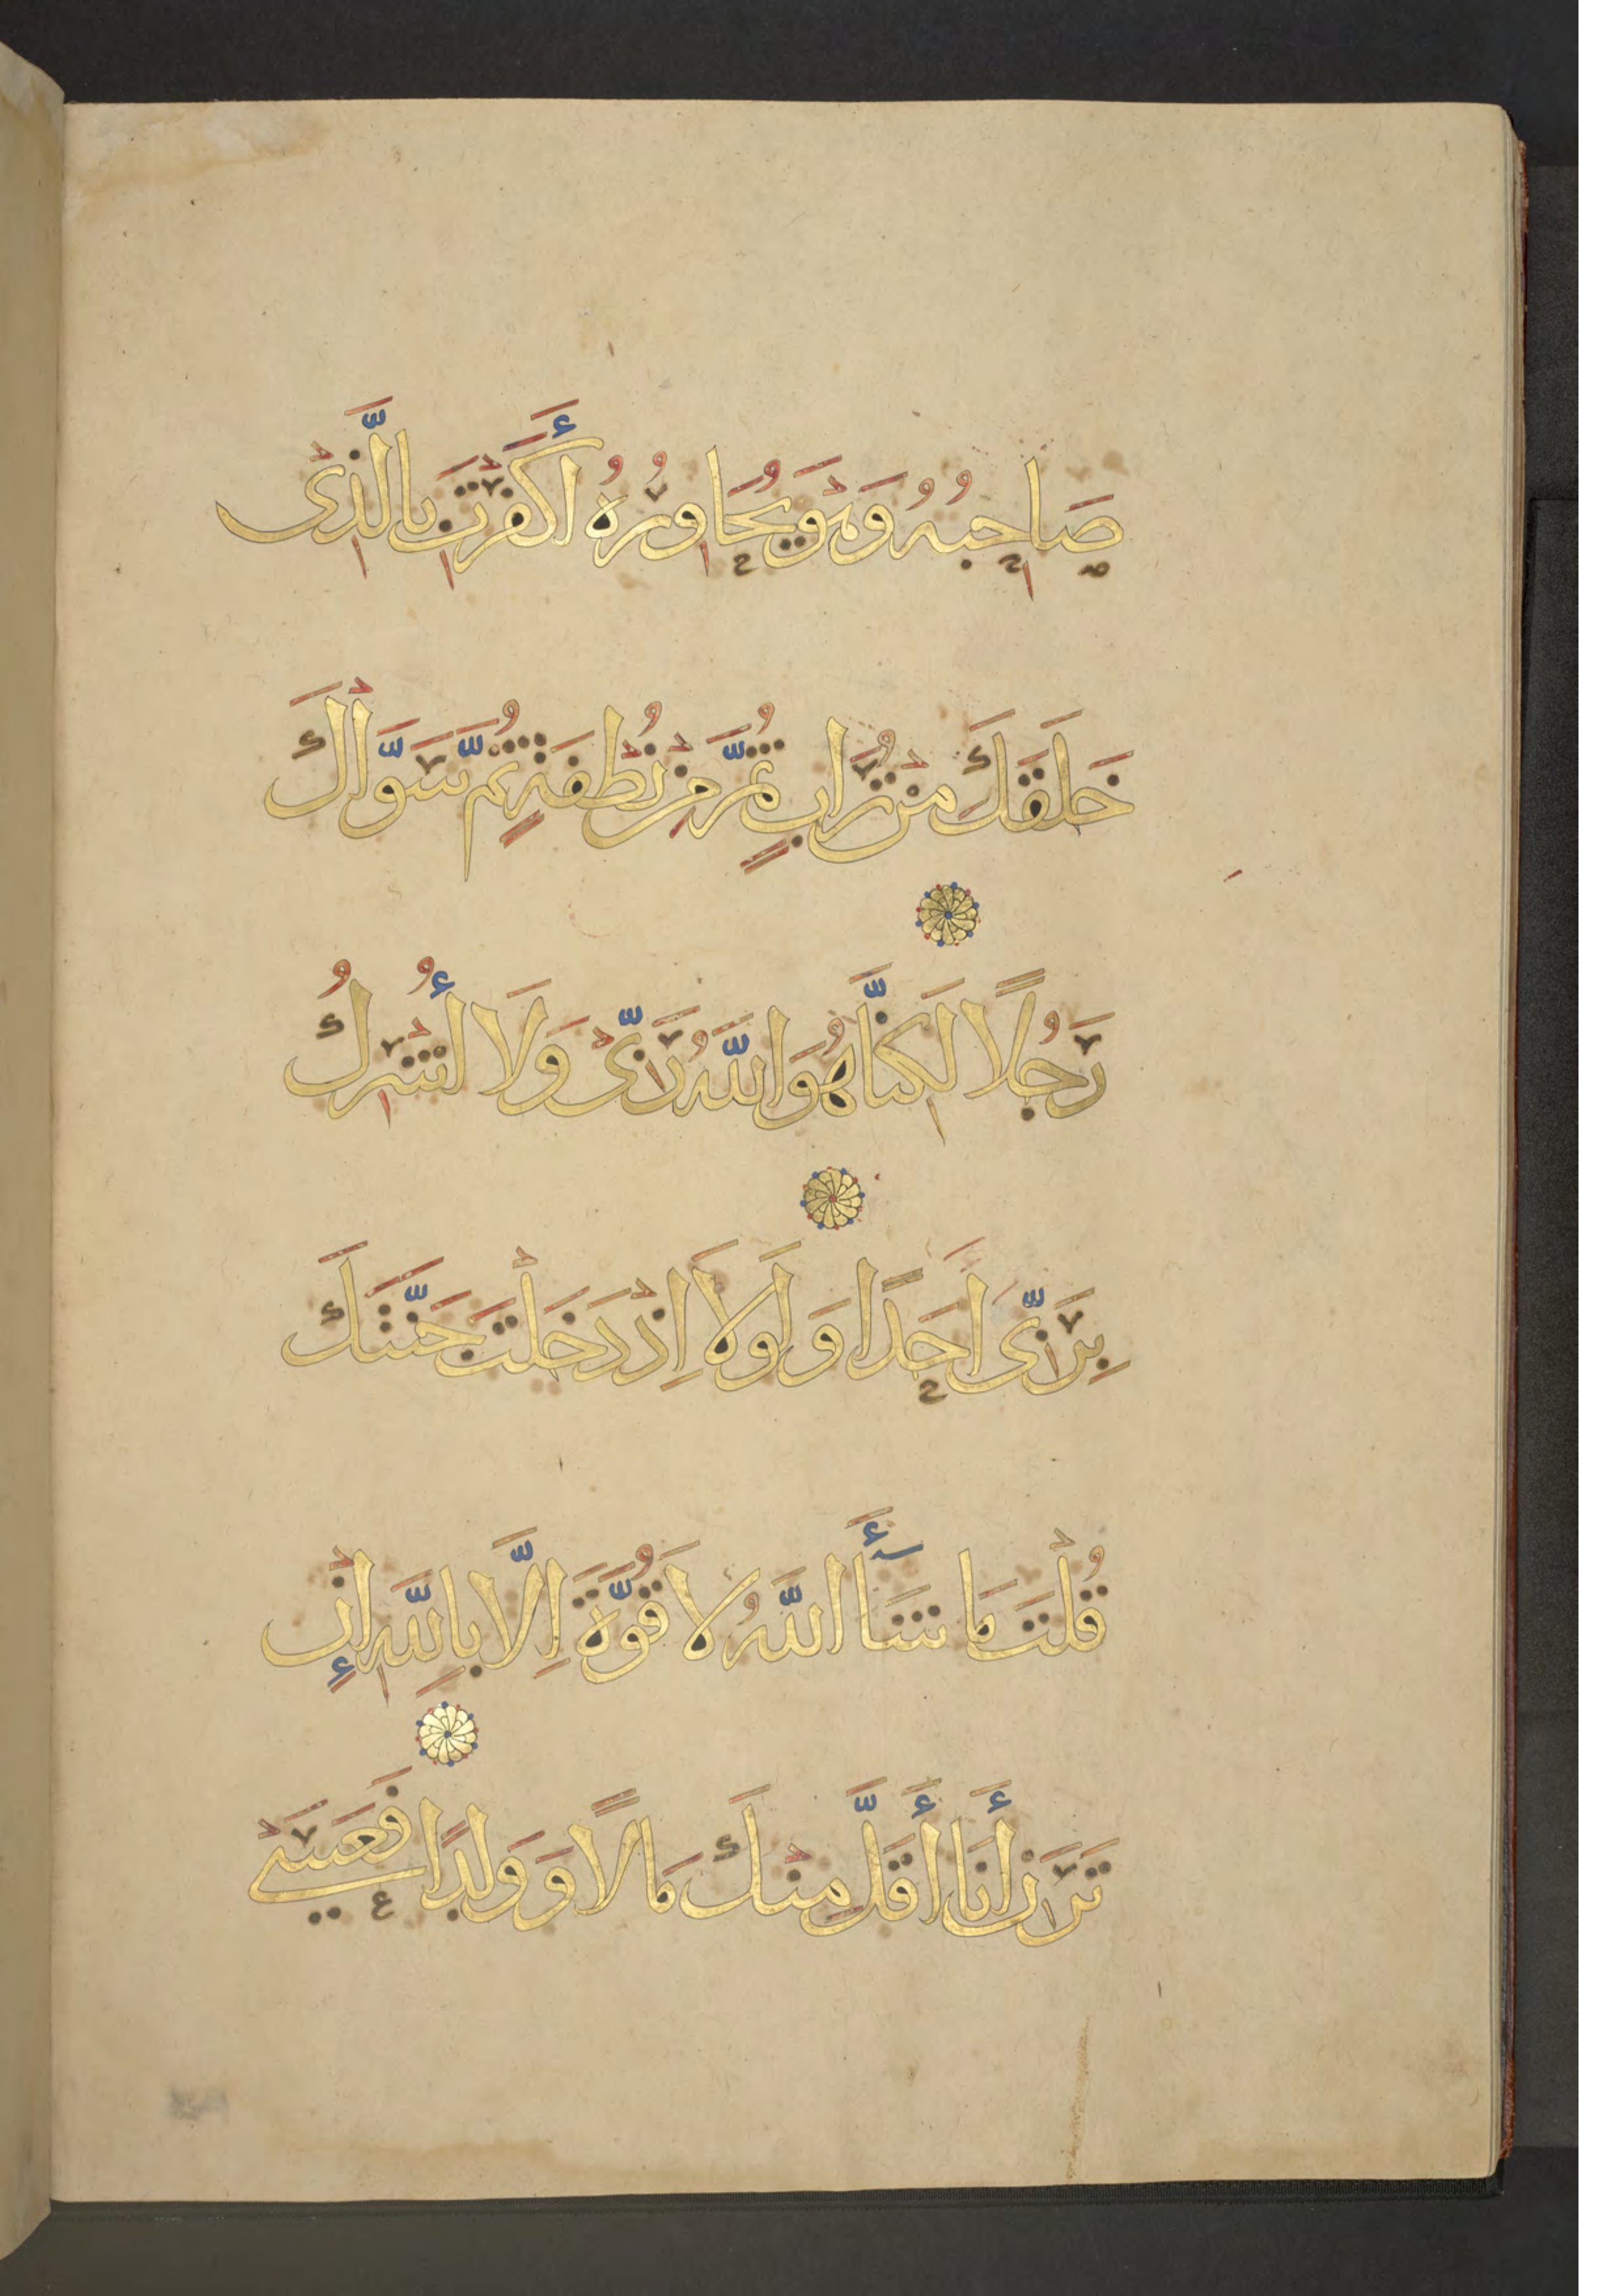 صَاحِبُهُ وَهْوَ يُحَاوِرُهُ أَكَفَرْتَ بِالَّذِى
خَلَقَكَ مِنْ تُرَابٍ ثُمَّ مِنْ نُطْفَةٍ ثُمَّ سَوَّاكَ
رَجُلًا لَكِنَّا هُوَ اللَّهُ رَبِّى وَلَا أُشْرِكُ
بِرَبِّى أَحَدًا وَلَوْلَا إِذْ دَخَلْتَ جَنَّتَكَ
قُلْتَ مَا شَأَ اللَّهُ لَا قُوَّةَ إِلَّا بِاللَّهِ إِنْ
تَرَنِ أَنَا أَقَلَّ مِنْكَ مَالًا وَوَلَدًا فَعَسَى